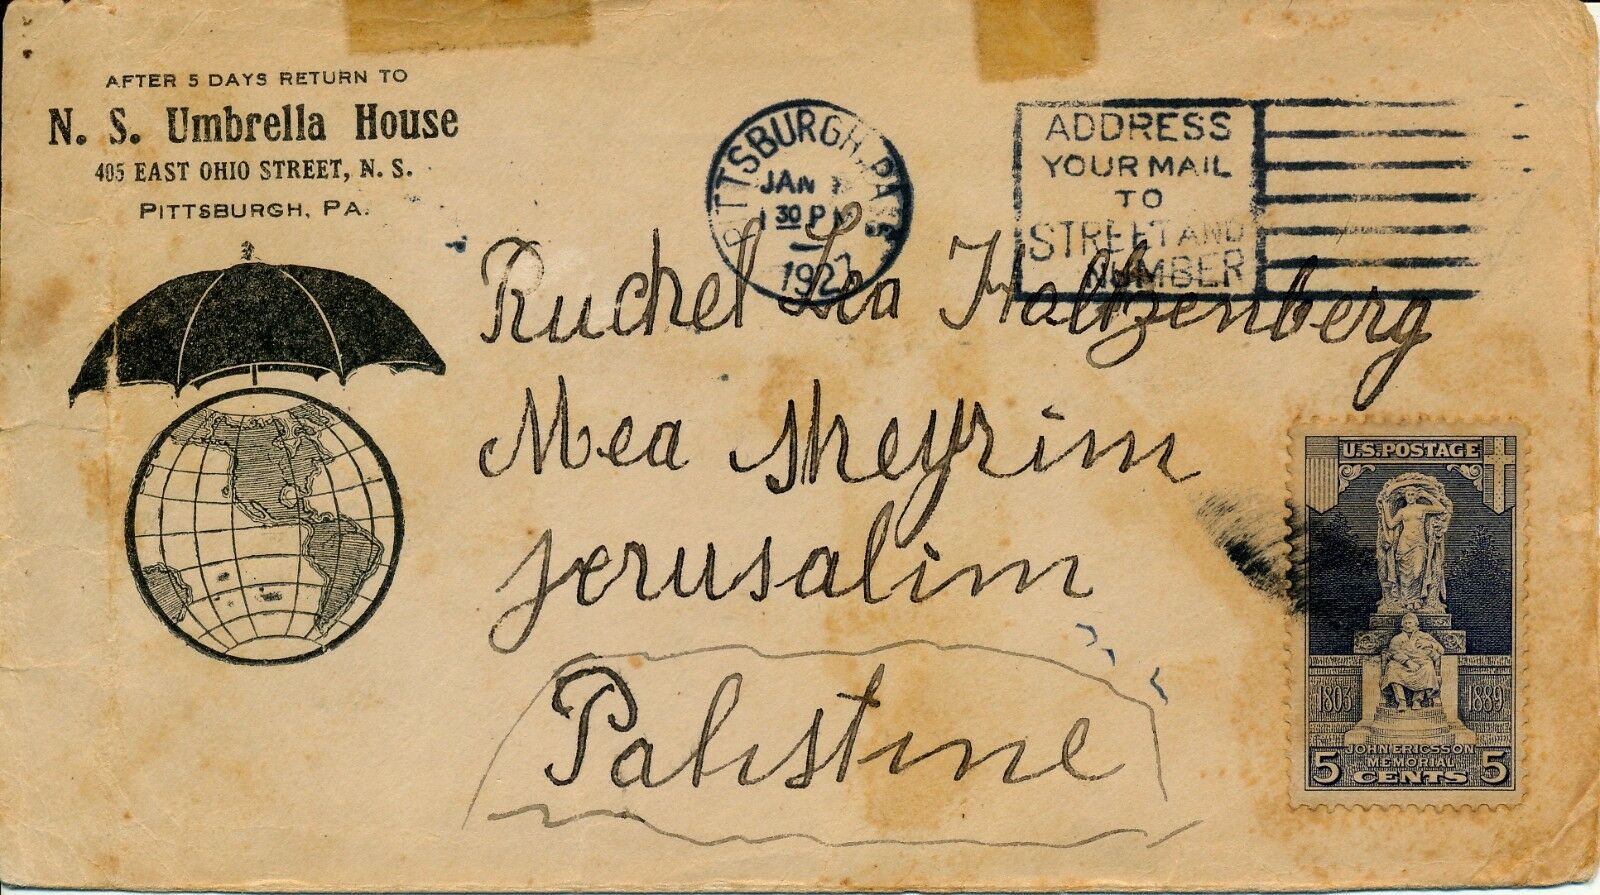 AFTER 5 DAYS RETURN TO
N. S. Umbrella House
405 EAST OHIO STREET, N. S.
PITTSBURGH, PA.
PITTSBURGH, PA.
JAN
1 30 PM
1927
ADDRESS
YOUR MAIL
TO
STREET AND
NUMBER
Ruchel Lea Haltzenberg
Mea sheyrim
Jerusalim
Palistine
U.S. POSTAGE
1803 1889
JOHN ERICSSON
MEMORIAL
5 CENTS 5